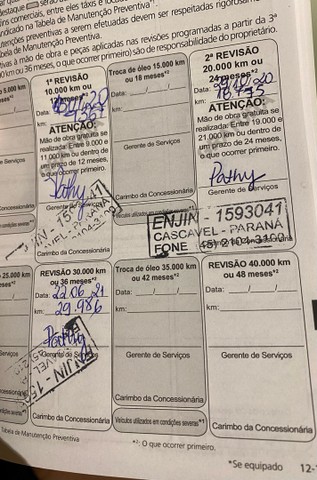 fins comerciais, entre eles táxis e locad
indicado na Tabela de Manutenção Preventiva*¹.
tenções preventivas a serem efetuadas devem ser respeitadas rigorosam
Tabela de Manutenção Preventiva.
a mão de obra e peças aplicadas nas revisões programadas a partir da 3ª
km ou 36 meses, o que ocorrer primeiro) são de responsabilidade do proprietário.
5.000 km
1ª REVISÃO
10.000 km ou
km:
ATENÇÃO:
Mão de obra gratuita se
realizada: Entre 9.000 e
11.000 km ou dentro de
um prazo de 12 meses,
o que ocorrer primeiro.
Pathy
Troca de óleo 15.000 km
ou 18 meses*²
Data: ___/___/___
km:
Gerente de Serviços
Carimbo da Concessionária
2ª REVISÃO
20.000 km ou
24 meses*²
km:
ATENÇÃO:
Mão de obra gratuita se
realizada: Entre 19.000 e
21.000 km ou dentro de
um prazo de 24 meses,
o que ocorrer primeiro.
Pathy
Gerente de Serviços
ENJIN - 1593041
CASCAVEL - PARANÁ
FONE
Carimbo da Concessionária
25.000 km
REVISÃO 30.000 km
ou 36 meses*²
Data: 22.06.21
km: 29.986
Pathy
Gerente de Serviços
Carimbo da Concessionária
Troca de óleo 35.000 km
ou 42 meses*²
Data: ___/___/___
km:
Gerente de Serviços
Carimbo da Concessionária
Veículos utilizados em condições severas*¹
REVISÃO 40.000 km
ou 48 meses*²
Data: ___/___/___
km:
Gerente de Serviços
Carimbo da Concessionária
Tabela de Manutenção Preventiva
*²: O que ocorrer primeiro.
*Se equipado